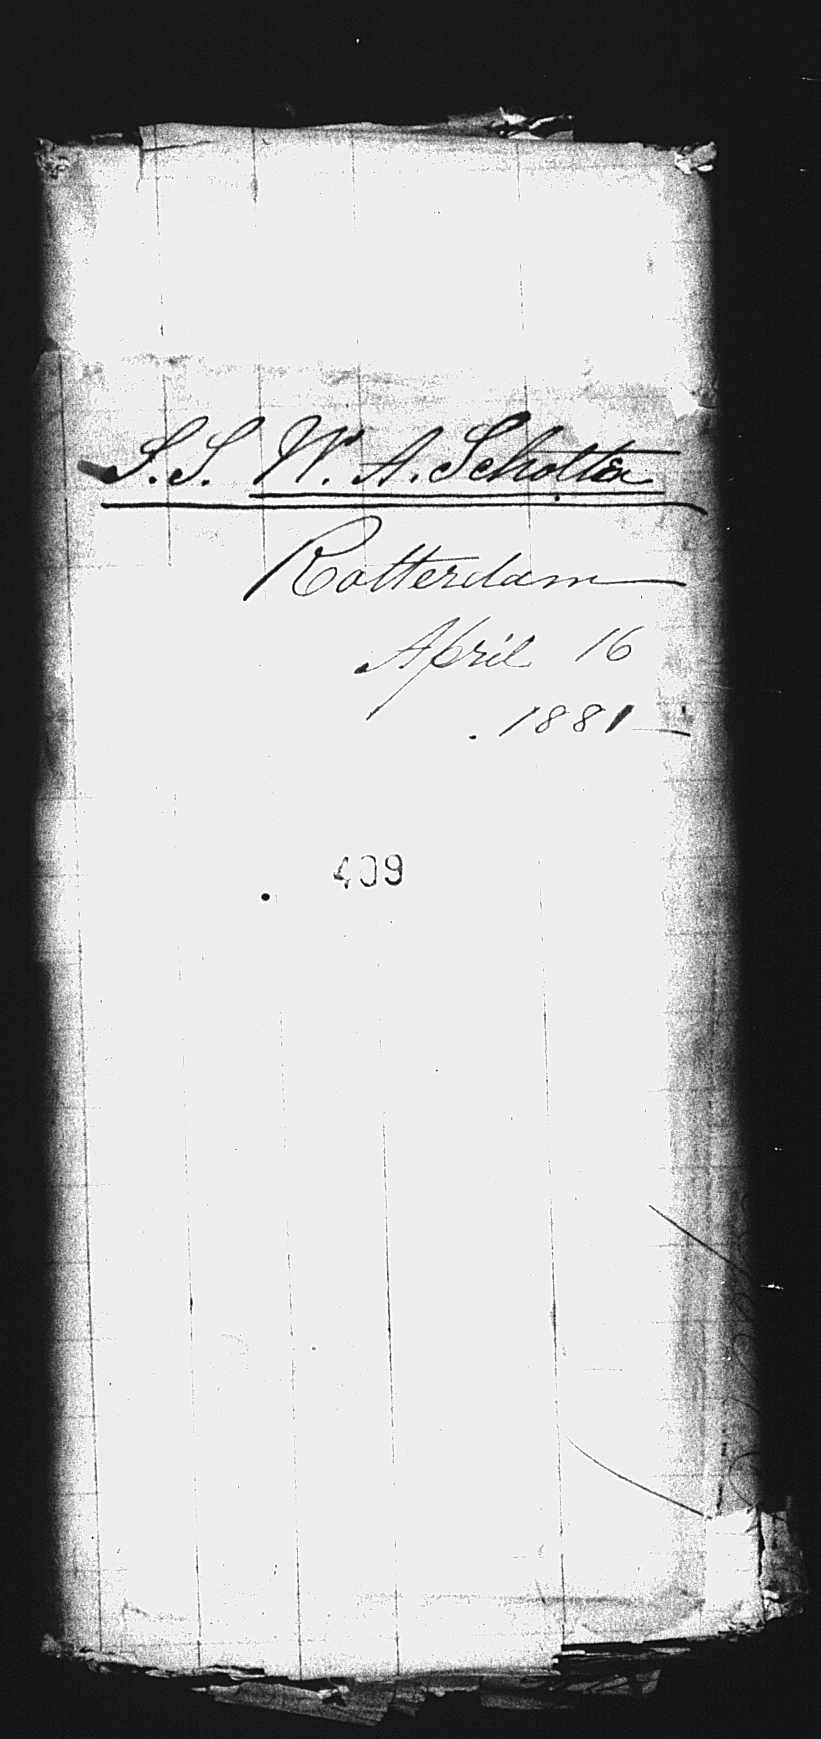 S.S. W. A. Scholten
Rotterdam
April 16
1881
409